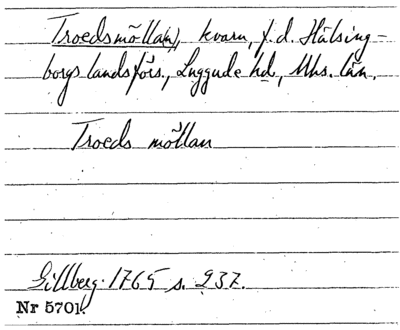 Troedsmölla(n), kvarn, f.d. Hälsing-
borgs landsförs., Luggude hd, Mhs. län.
Troeds möllan
Gillberg 1765 s. 237.
Nr 5701.